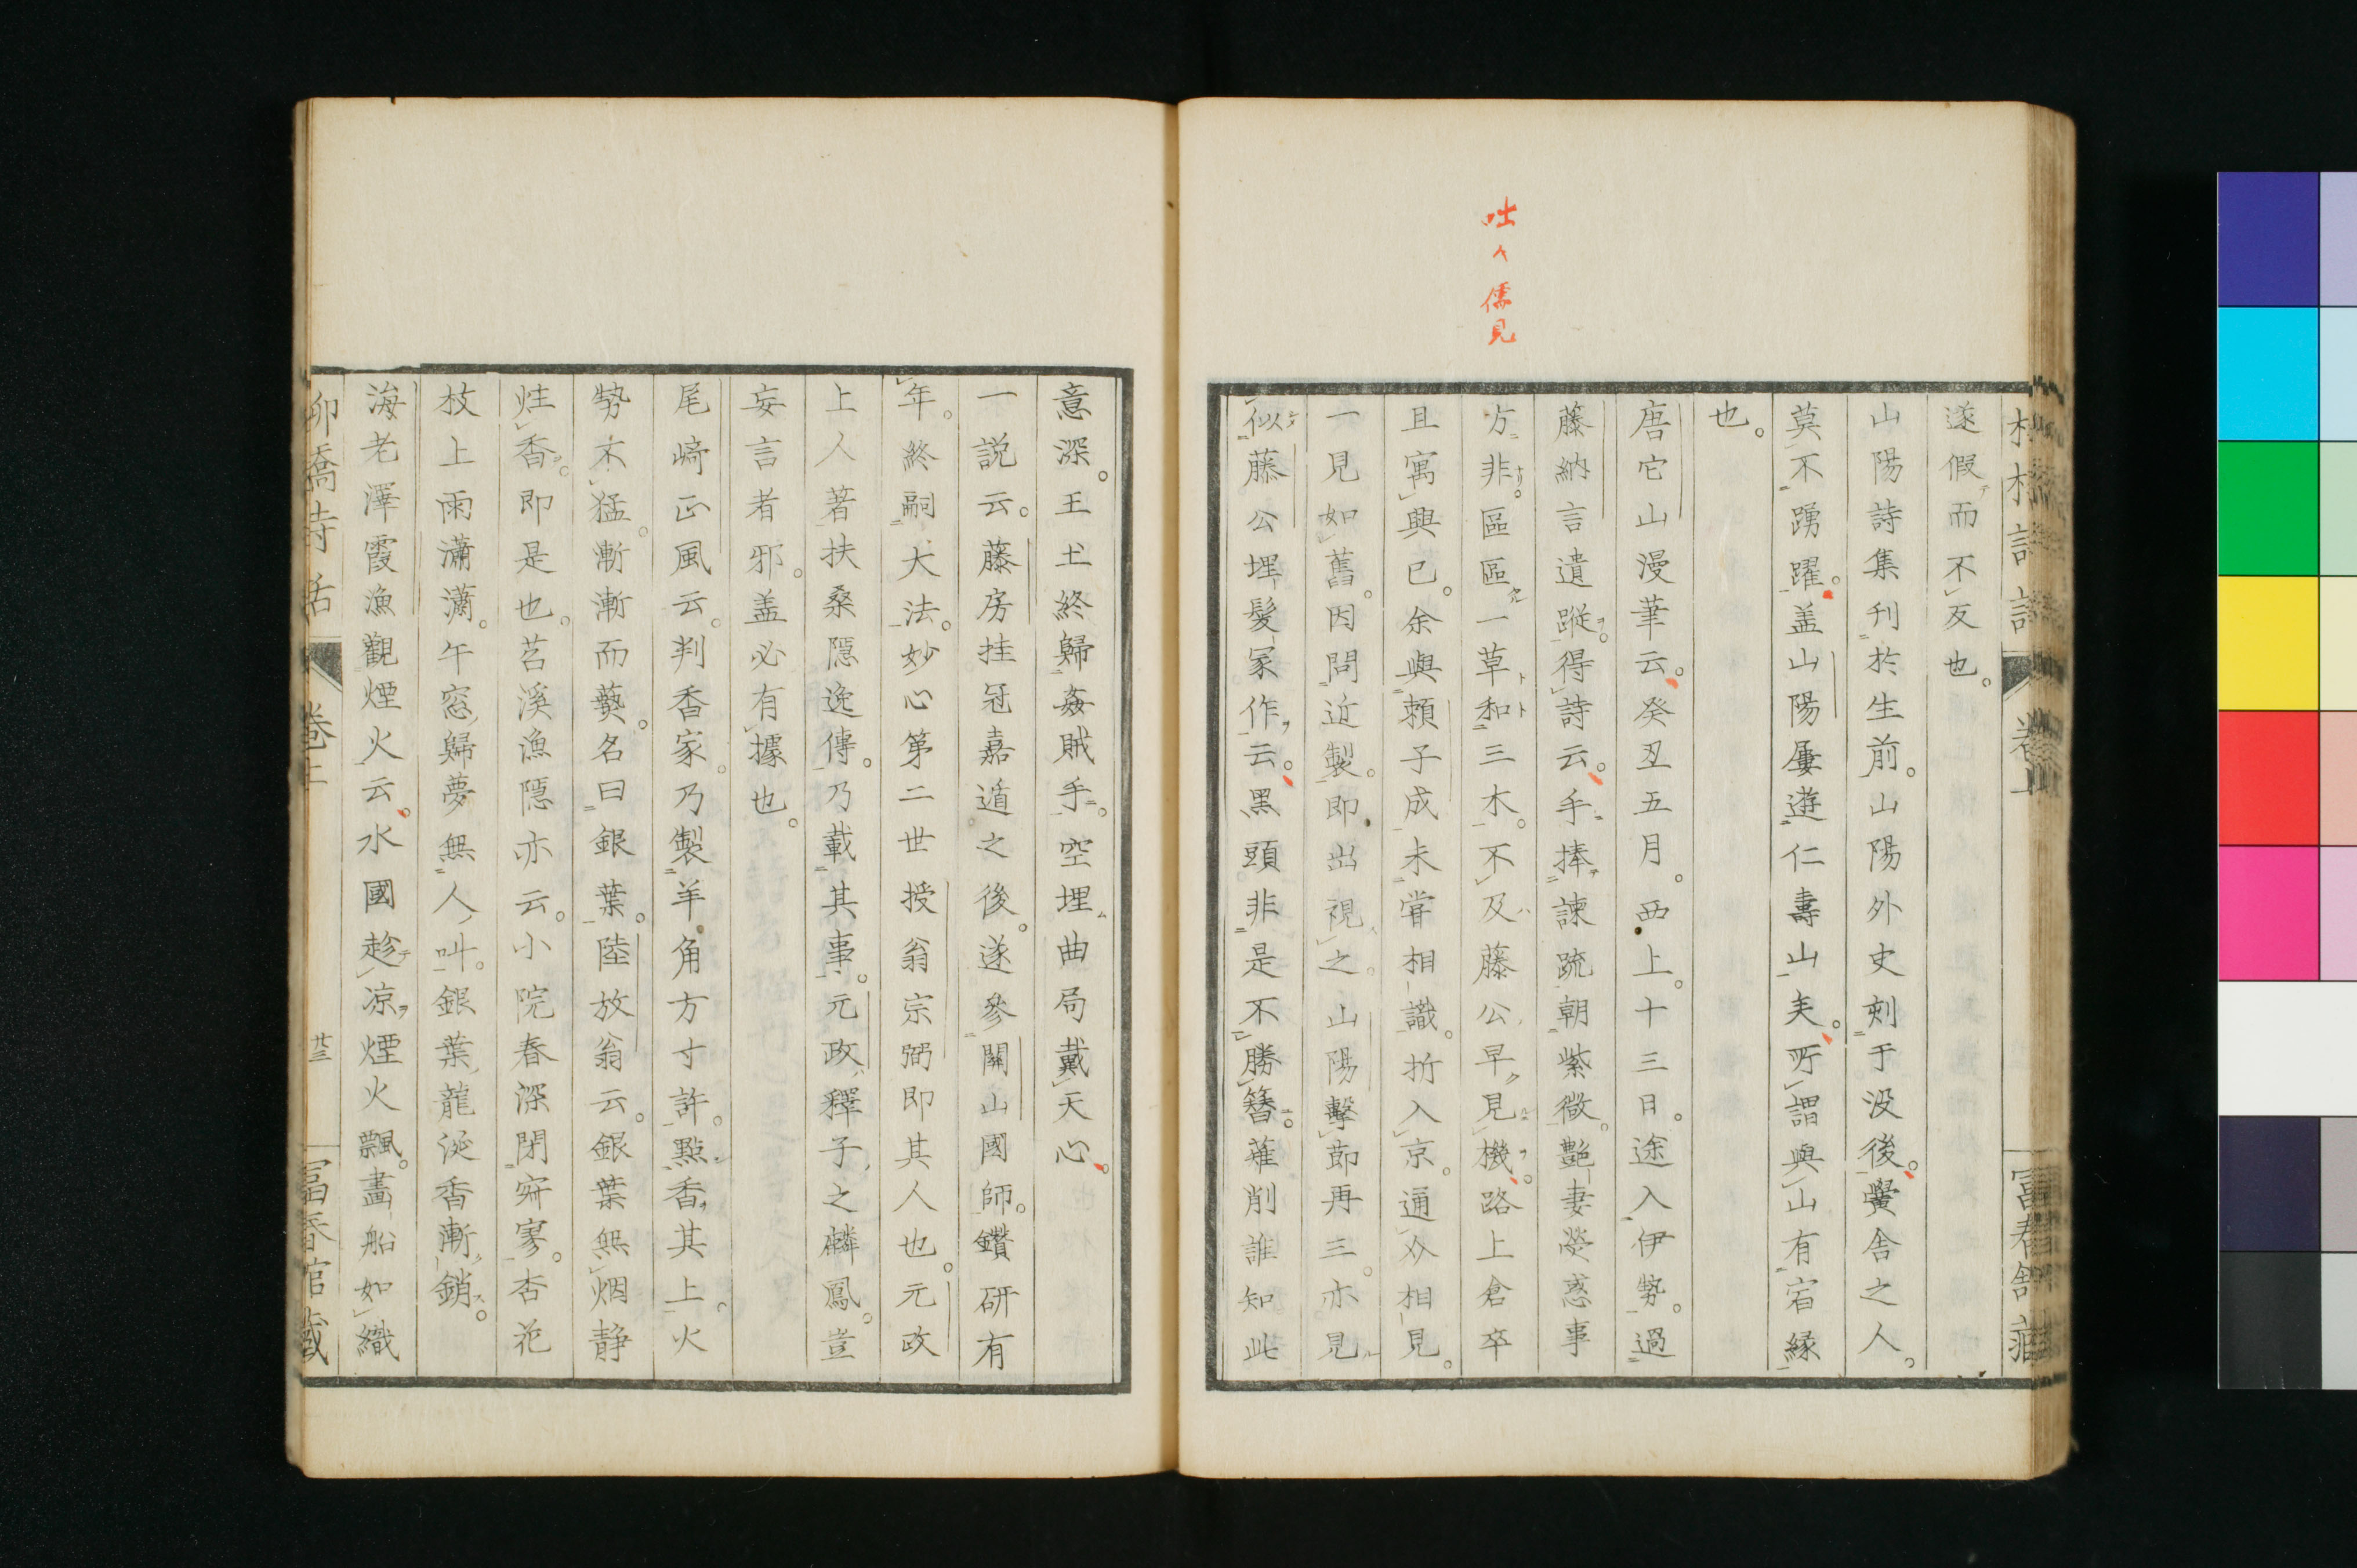 咄々儒見
遂假而不反也。
山陽詩集刊於生前。山陽外史刻于沒後。黌舍之人。
莫不踴躍。盖山陽屢遊仁壽山。夫所謂與山有宿縁
也。
唐它山漫筆云。癸丑五月。西上。十三日。途入伊勢。過
藤納言遺蹤。得詩云。手捧諫疏朝紫微。艶妻熒惑事
方非。區區一草和三木。不及藤公早見機。路上倉卒
且寓興已。余與頼子成未甞相識。折入京。通刺相見。
一見如舊。因問近製。即出視之。山陽擊節再三。亦見
似藤公埋髮冢作云。黒頭非是不勝簪。薙削誰知此
意深。王土終歸姦賊手。空埋曲局戴天心。
一説云。藤房挂冠嘉遁之後。遂參關山國師。鑽研有
年。終嗣大法。妙心第二世授翁宗弼即其人也。元政
上人著扶桑隱逸傳。乃載其事。元政釋子之麟鳳。豈
妄言者邪。盖必有據也。
尾崎正風云。判香家乃製羊角方寸許。點香其上。火
勢不猛。漸漸而爇。名曰銀葉。陸放翁云。銀葉無烟静
炷香。即是也。苕溪漁隱亦云。小院春深閉穽寥。杏花
枝上雨瀟瀟。午窓歸夢無人叫。銀葉龍涎香漸銷。
海老澤霞漁觀煙火云。水國趁凉煙火飄。畫船如織
柳橋詩話 卷上 廿三 冨春館藏